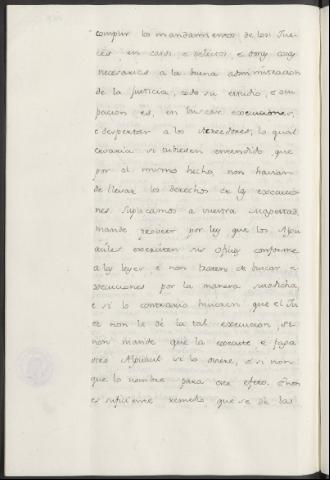 cumplir los mandamientos de los Jue-
ces, en casos, e delictos, e cosas muy
necesarias a la buena administracion
de la Justicia, todo su estudio, e ocu
pacion es, en buscar execuciones,
e despertar a los Acreedores, lo qual
cesaria si tubiesen entendido que
por el mismo hecho, non havian
de llevar los derechos de las execucio
nes Suplicamos a vuestra Magestad,
mande proveer por ley que los Algu
aciles exerciten sus oficios conforme
a las leyes, e non traten de buscar, e
xecuciones por la manera susodicha
e si lo contrario hicieren que el Ju
ez non le dé la tal execucion, si-
non mande que la execute, e faga
otro Alguacil si lo oviere, e si non
que lo nombre para este efeto. E non
es suficiente remedio que se dé las